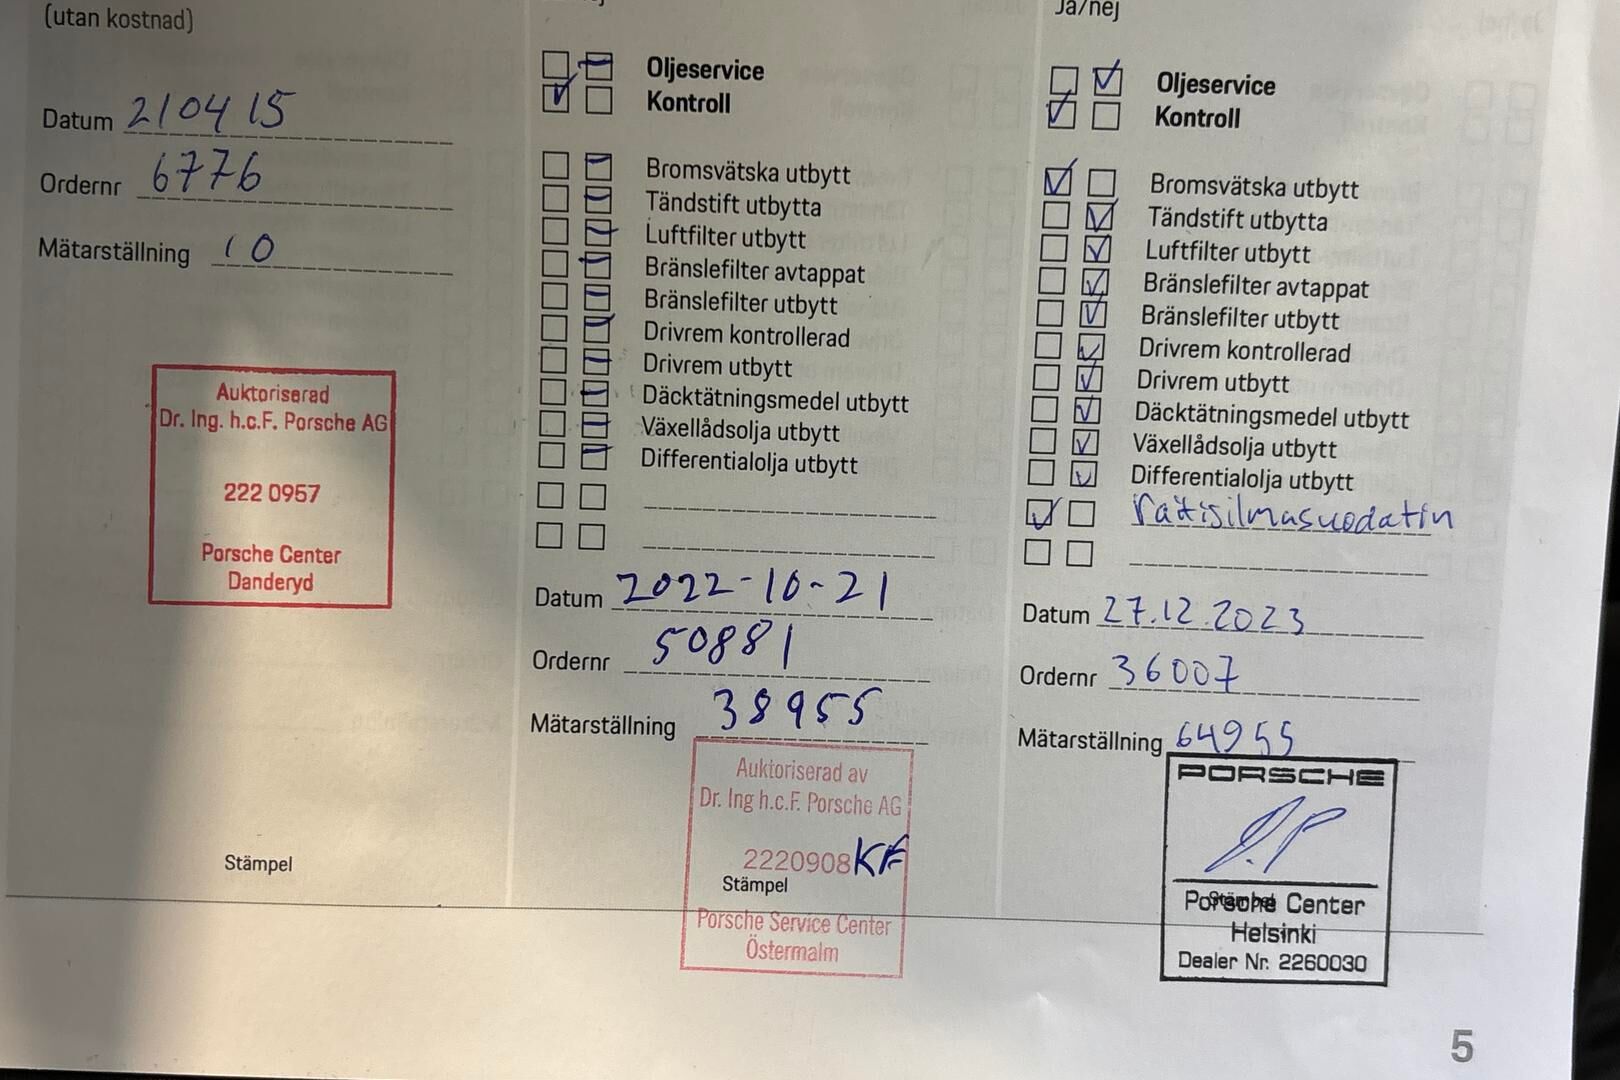 (utan kostnad)
Datum 210415
Ordernr 6776
Mätarställning 10
Auktoriserad
Dr. Ing. h.c.F. Porsche AG
222 0957
Porsche Center
Danderyd
Stämpel
Oljeservice
Kontroll
Bromsvätska utbytt
Tändstift utbytta
Luftfilter utbytt
Bränslefilter avtappat
Bränslefilter utbytt
Drivrem kontrollerad
Drivrem utbytt
Däcktätningsmedel utbytt
Växellådsolja utbytt
Differentialolja utbytt
Datum 2022-10-21
Ordernr 50881
Mätarställning 38955
Auktoriserad av
Dr. Ing h.c.F. Porsche AG
2220908 KF
Stämpel
Porsche Service Center
Östermalm
Ja/nej
Oljeservice
Kontroll
Bromsvätska utbytt
Tändstift utbytta
Luftfilter utbytt
Bränslefilter avtappat
Bränslefilter utbytt
Drivrem kontrollerad
Drivrem utbytt
Däcktätningsmedel utbytt
Växellådsolja utbytt
Differentialolja utbytt
raitisilmasuodatin
Datum 27.12.2023
Ordernr 36007
Mätarställning 64955
PORSCHE
Stämpel
Porsche Center
Helsinki
Dealer Nr. 2260030
5